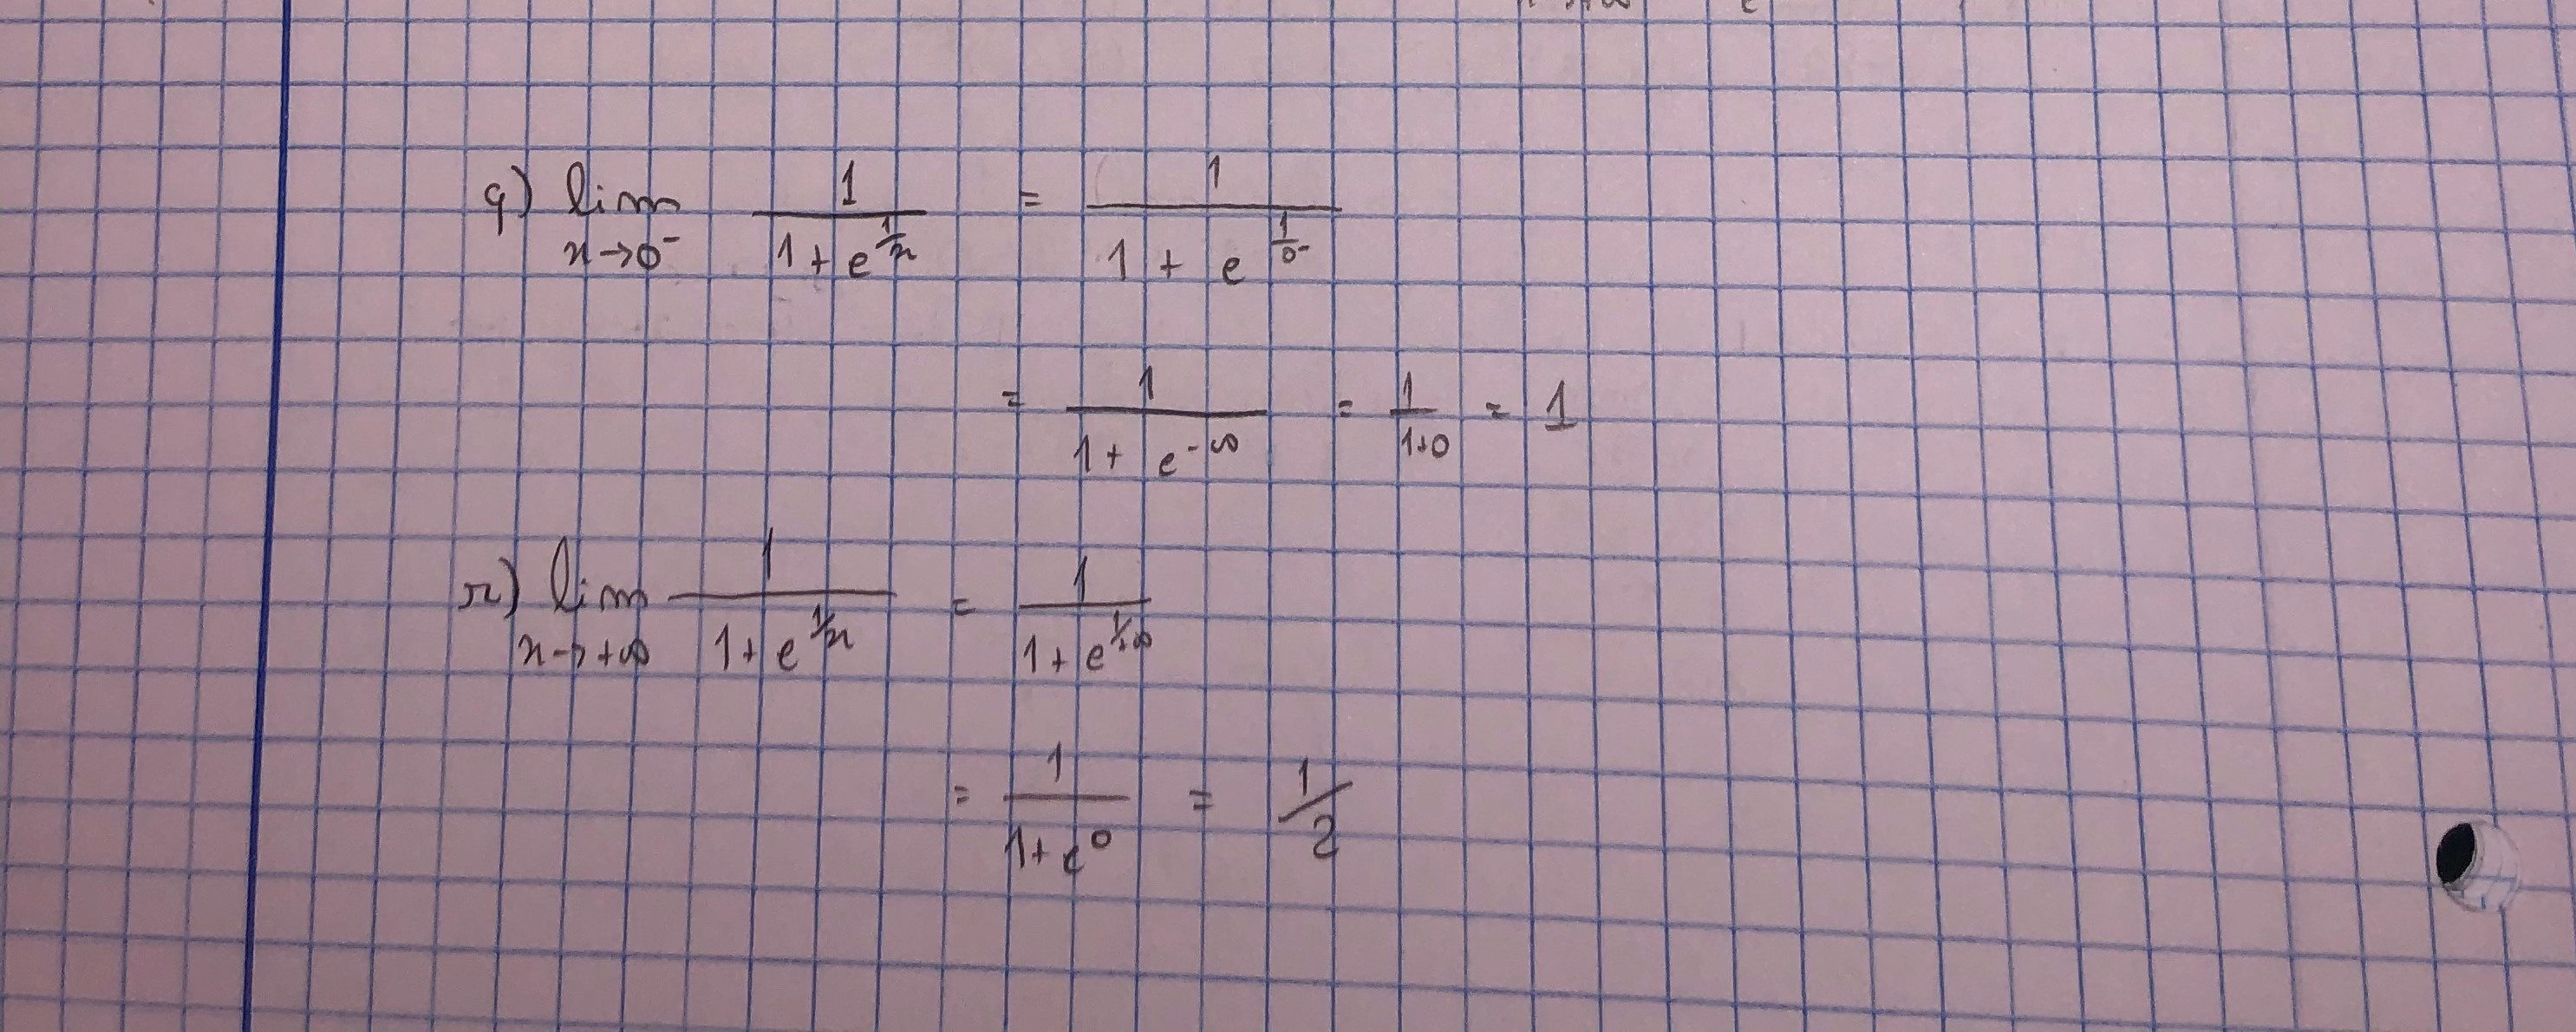 q) lim x→0⁻ 1/(1 + e^(1/x)) = 1/(1 + e^(1/0⁻))
= 1/(1 + e^(-∞)) = 1/(1+0) = 1
r) lim x→+∞ 1/(1 + e^(1/x)) = 1/(1 + e^(1/+∞))
= 1/(1 + e^0) = 1/2